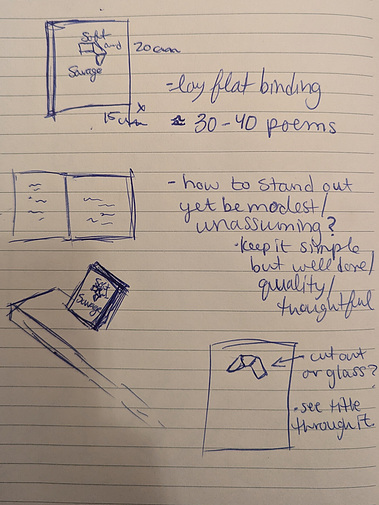 Soft
and
Savage
20cm
15cm x
-lay flat binding
≈ 30-40 poems
- how to stand out
yet be modest/
unassuming?
• keep it simple
but well done/
quality/
thoughtful
Soft
Savage
cut out
or glass?
• see title
through it.